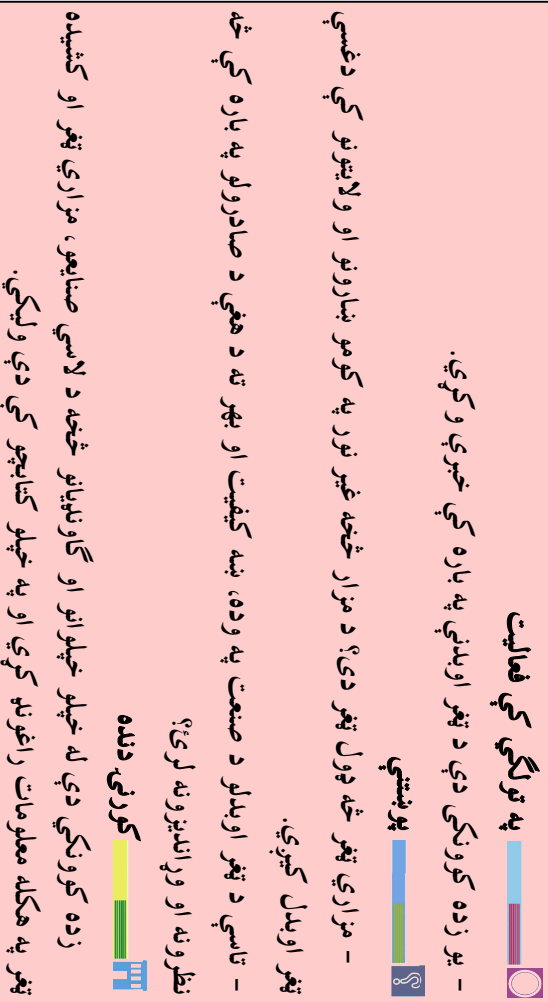 په ټولګي کې فعالیت
- یو زده کوونکی دې د ټغر اوبدنې په باره کې خبرې وکړي.
پوښتنې
- مزاري ټغر څه ډول ټغر دی؟ د مزار څخه غیر نور په کومو ښارونو او ولایتونو کې دغسې
ټغر اوبدل کېږي.
- تاسې د ټغر اوبدلو د صنعت په وده، ښه کیفیت او بهر ته د هغې د صادرولو په باره کې څه
نظرونه او وړاندیزونه لرئ؟
کورنۍ دنده
زده کوونکي دې له خپلو خپلوانو او ګاونډیانو څخه د لاسي صنایعو، مزاري ټغر او کشیده
ټغر په هکله معلومات راغونډ کړي او په خپلو کتابچو کې دې ولیکي.